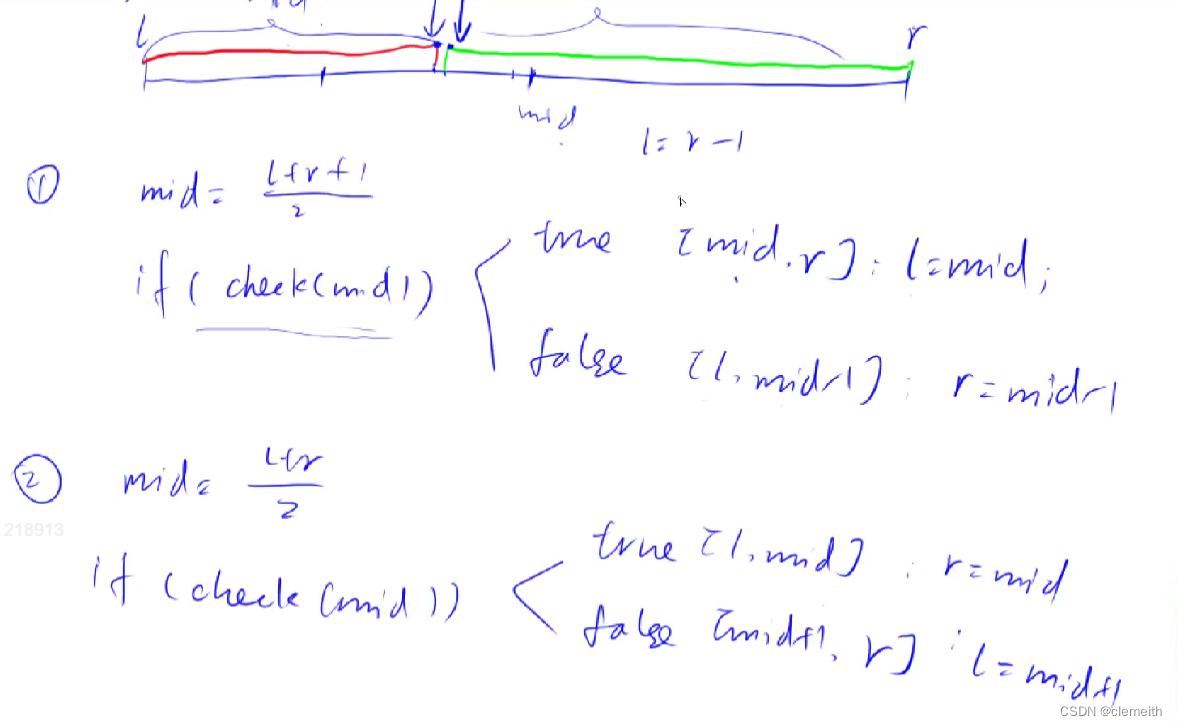 l r
mid l = r - 1
① mid = (l+r+1)/2
if ( check(mid) ) true [mid, r] : l = mid;
false [l, mid-1] : r = mid-1
② mid = (l+r)/2
218913
if (check (mid)) true [l, mid] : r = mid
false [mid+1, r] : l = mid+1
CSDN @clemeith